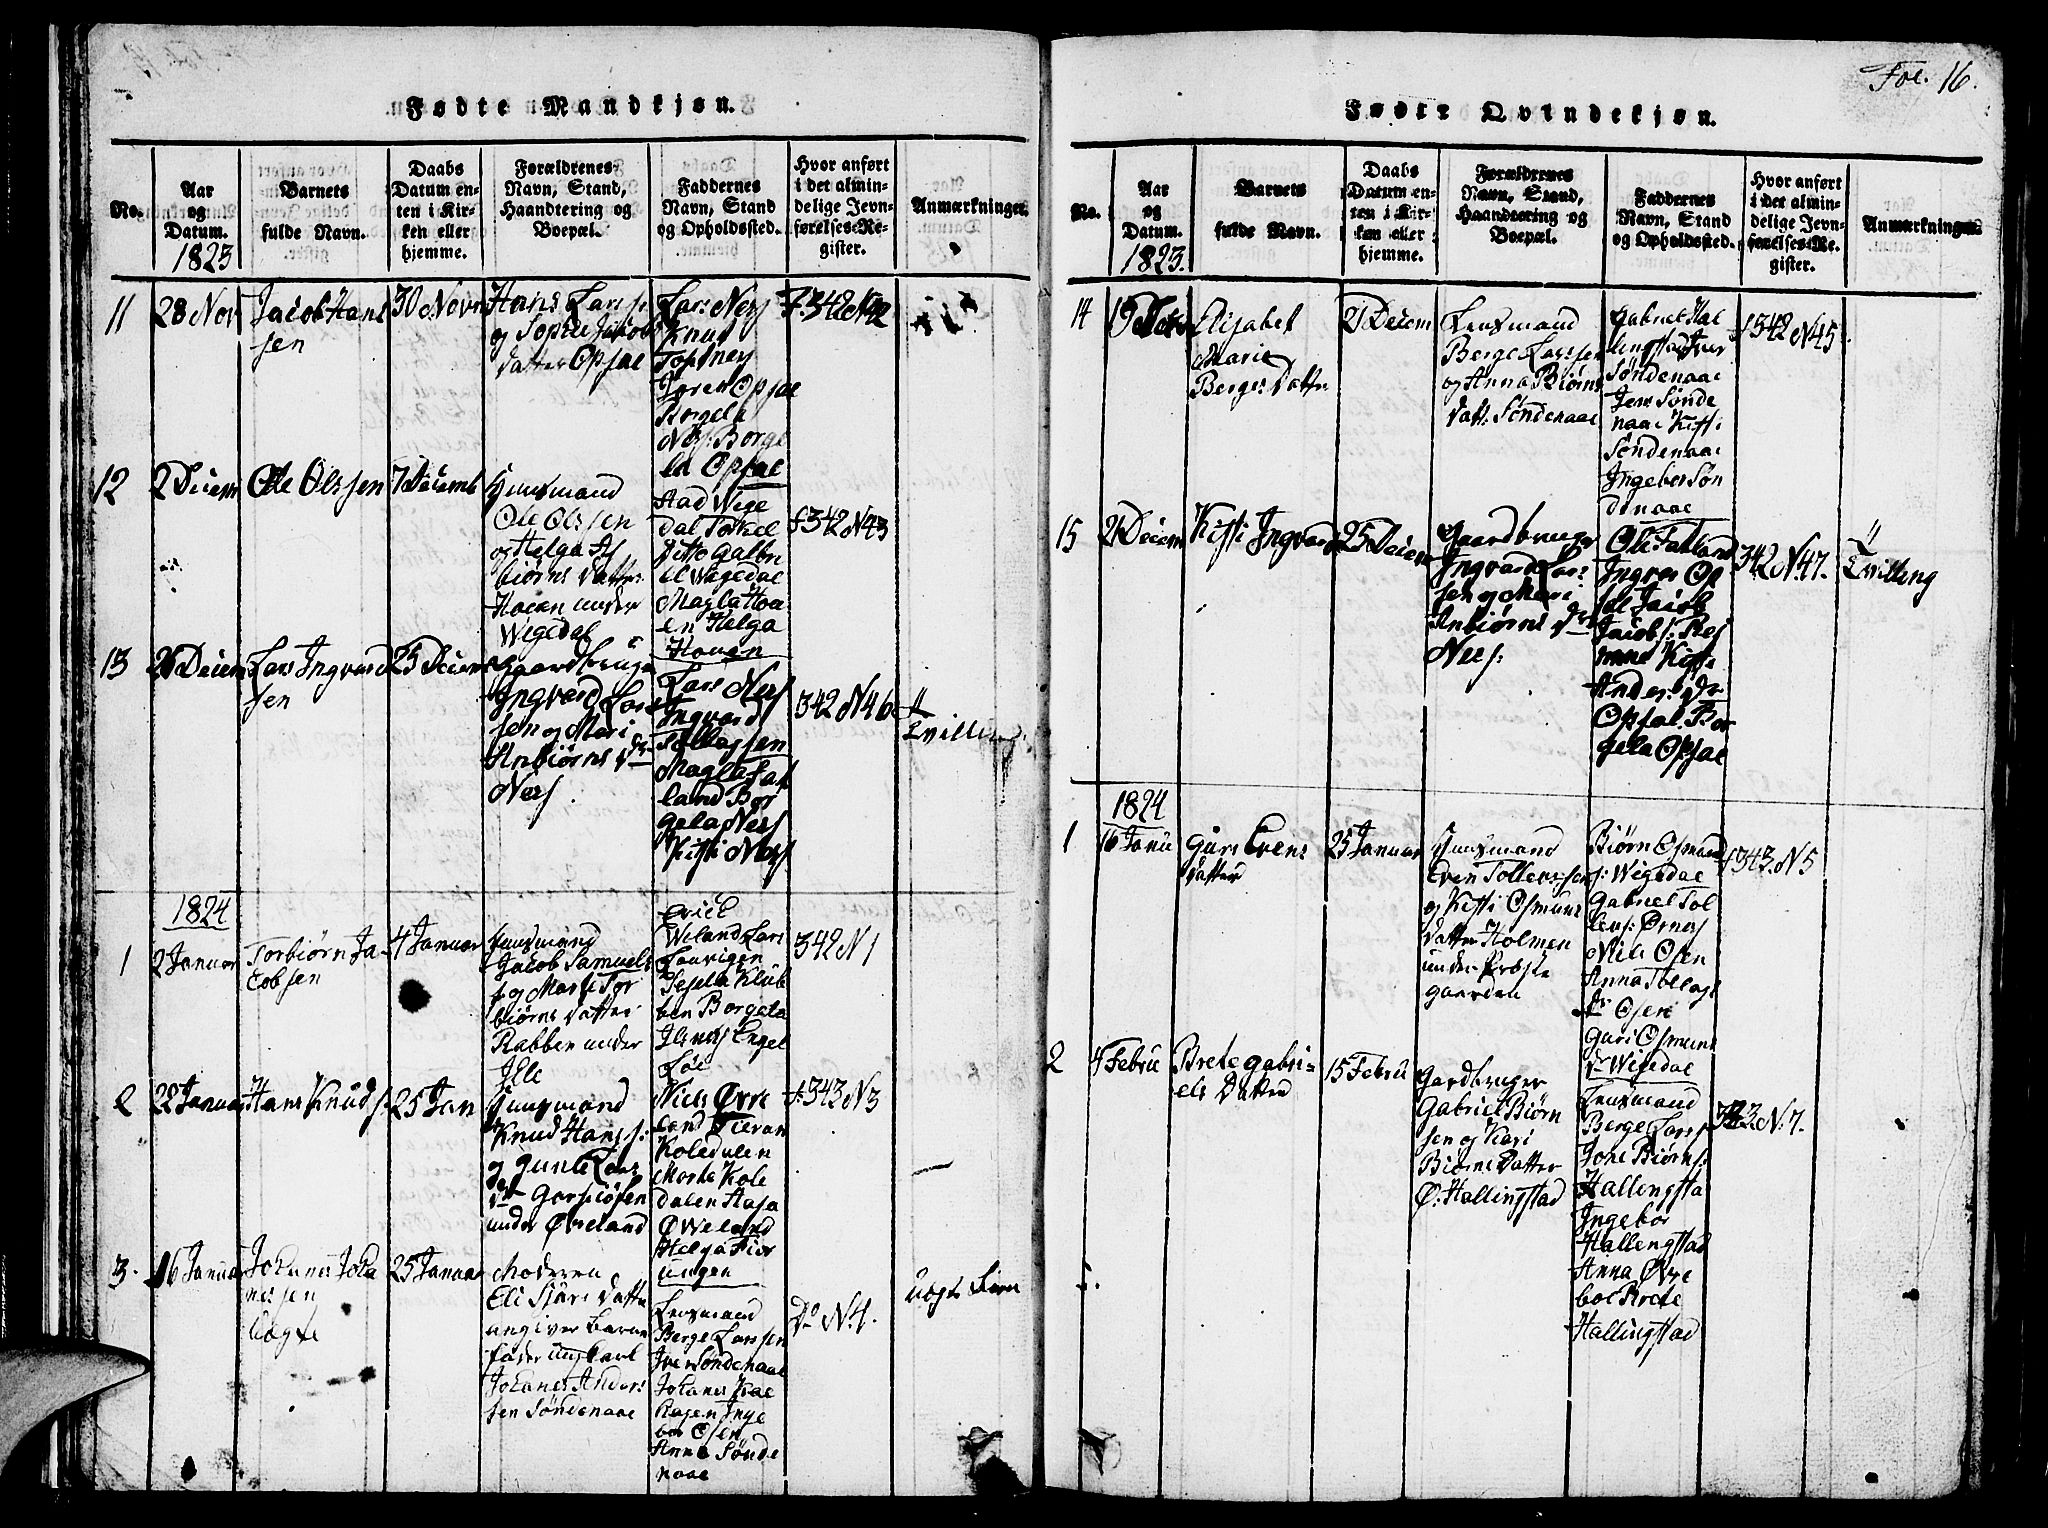 Fødte Mandkjøn.
No.
Aar
og
Datum.
1823
Barnets
fulde Navn.
Daabs
Datum en-
ten i Kir-
ken eller
hjemme.
Forældrenes
Navn, Stand,
Haandtering og
Boepæl.
Faddernes
Navn, Stand
og Opholdssted.
Hvor anført
i det almin-
delige Jevn-
førelses-Re-
gister.
Anmærkninger.
11
28 Nov
Jacob Hans
sen
30 Novr
Hans Larss
og Sophie Jakobs
Datter Opsal
Lars Ners
Knud
Tos Ners
Opsal
Borgela
Ners: Borge
la Opsal
f. 342 N 42
12
2 Decem
Ole Olssen
7 Decemb
Huusmand
Ole Olssen
og Helga As
biørns Datter
Hoven under
Wegedal
Aad Wege
dal Torkel
Ditto
el Wegedal
Magla Hov
en Helga
Hoven
f 342 N 43
13
21 Decem
Lars Ingvard
sen
25 Decem
Gaardbruger
Ingvard Lars
sen og Mari
Anbiørns Dr
Ners
Lars Ners
Ingvard
Tollagsen
Magla Fat
land Bor
gela Ners
Kisti Ners
342 N 46
Tvilling
1824
1
2 Januar
Torbiørn Ja
cobsen
4 Januar
Huusmand
Jacob Samuels
s og Marthe Tor
biørns Datter
Rabben under
Erick
Weland Lars
Lauvigen
Klub
ben Borgela
Engel
Løe
342 N 1
2
22 Januar
Hans Knuds:
25 Jan
Huusmand
Knud Hanss:
og Gunle Lars
Dr
under Øveland
Niels Øve
land
Koledalen
Marte Kole
dalen Aasa
Øweland
Helga Fior
ungen
f. 343 N 3
3.
16 Januar
Johanes Joha
nessen
Uægte
25 Januar
Moderen
Eli Siurs Datte
angiver Barne
fader ungkarl
Johanes Anders
sen Søndenaae
Lensmand
Berge Larssen
Iver Søndenaae
Johanes
Inge
bor Osen
Anna Sønde
naae
Do N. 4.
Fol. 16.
Fødte Qvindekjøn.
No.
Aar
og
Datum.
1823.
Barnets
fulde Navn.
Daabs
Datum en-
ten i Kir-
ken eller
hjemme.
Forældrenes
Navn, Stand,
Haandtering og
Boepæl.
Faddernes
Navn, Stand
og Opholdssted.
Hvor anført
i det almin-
delige Jevn-
førelses-Re-
gister.
Anmærkninger.
14
19 Dec
Elisabet
Marie
Berges Datter
21 Decem
Lensmand
Berge Larssen
og Anna Biørns
Datt: Søndenaae
Gabriel Hal
lingstad Iver
Søndenaae
Jens Sønde
naae Kisti
Søndenaae
Ingebor Søn
denaae
f 342 N 45
15
21 Decem
Kisti Ingvards
25 Decem
Gaardbruger
Ingvard Lars
sen og Mari
Anbiørns Dr
Ners:
Ole Fatland
Ingver Op
sal Jacob
Jacobs:
Kisti
Anders Dr
Opsal Bor
gela Opsal
342 N. 47.
Tvilling
1824
1
16 Janu
Guri Evens
Datter
25 Januar
Huusmand
Even Tollerssen
og Kisti Osmuns
Datter Holmen
under Prøste
gaarden
Biørn Osmund
s: Wegedal
Gabriel Tol
lens: Ørnes
Niels Osen
Anna Tollags
Dr Osen
Guri Osmuns
Dr Wegedal
f 343. N 5
2
4 Febru
Brete Gabri-
els Datter
15 Febru
Gardbruger
Gabriel Biørn
sen og Kari
Biørns Datter
Ø. Hallingstad
Lensmand
Berge Larss
Jone Biørns:
Hallingsta
Ingebor
Hallengstad
Anna Øvre
boe Brete
Hallingstad
N. 7.